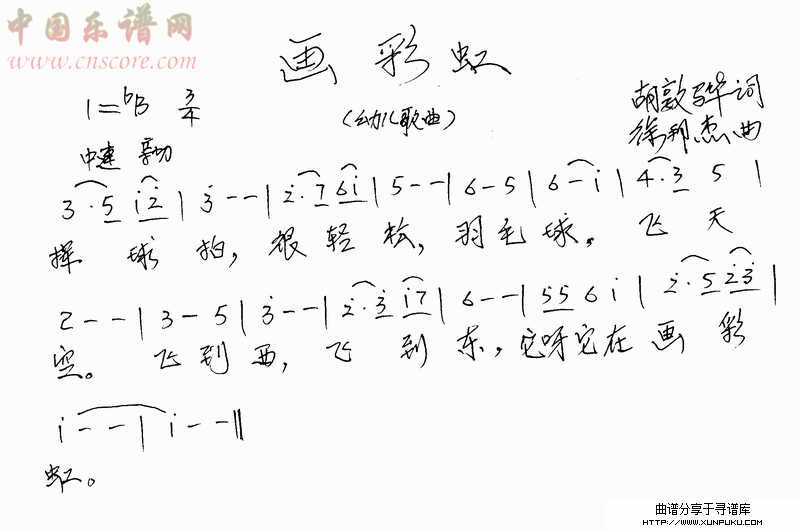 中国乐谱网
www.cnscore.com
画彩虹
(幼儿歌曲)
1=ᵇB 3/4
胡敦骅词
徐邦杰曲
中速
3·5 i̇2̇ | 3̇ - - | 2̇·7 6i̇ | 5 - - | 6 - 5 | 6 - i̇ | 4·3 5 |
挥球拍,很轻松,羽毛球,飞天
2 - - | 3 - 5 | 3̇ - - | 2̇·3̇ i̇7 | 6 - - | 55 6 i̇ | 2̇·5 2̇3̇ |
空。飞到西,飞到东,它呀它在画彩
i̇ - - | i̇ - - ‖
虹。
曲谱分享于寻谱库
HTTP://WWW.XUNPUKU.COM